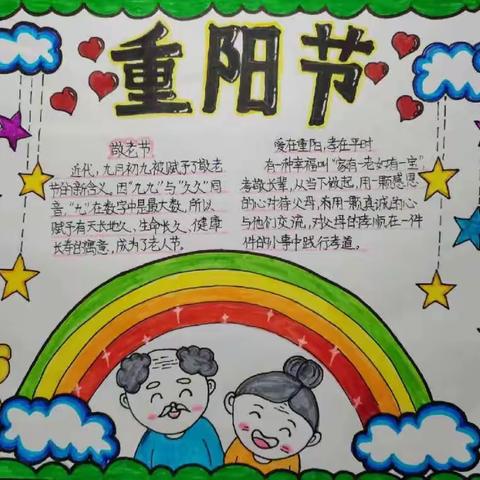 重阳节
敬老节
近代，九月初九被赋予了敬老
节的新含义，因“九九”与“久久”同
音，“九”在数字中是最大数，所以
赋于有天长地久、生命长久、健康
长寿的寓意，成为了老人节。
爱在重阳，孝在平时
有一种幸福叫“家有一老如有一宝”
孝敬长辈，从当下做起，用一颗感恩
的心对待父母，有用一颗真诚的心
与他们交流，对父母的孝顺在一件
件的小事中践行孝道。